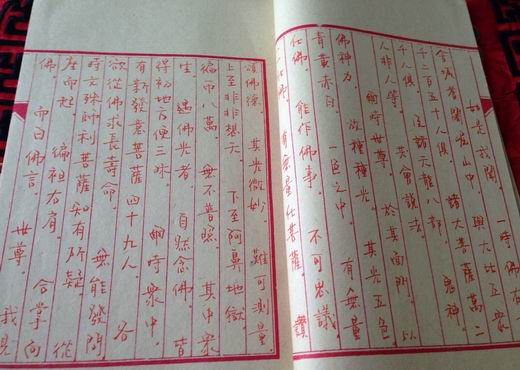 如是我聞。一時佛在
舍城耆闍崛山中 與大比丘衆
千二百五十人俱。諸大菩薩萬二
千人俱 及諸天龍八部。鬼神。
人非人等。共會說法。
爾時世尊 於其面門。以
佛神力。放種種光。其光五色
青黃赤白。一色之中 有無量
化佛。能作佛事 不可思議。
有無量化菩薩。讚
頌佛德。其光微妙 難可測量。
上至非非想天。下至阿鼻地獄。
徧帀八萬。無不普照。其中衆
生 遇佛光者。自然念佛。皆
得初地方便三昧。爾時衆中。
有新發意菩薩四十九人 各
欲從佛求長壽命。無能發問。
時文殊師利菩薩 知有所疑。從
座而起 徧袒右肩。合掌向
佛 而白佛言。世尊 我見